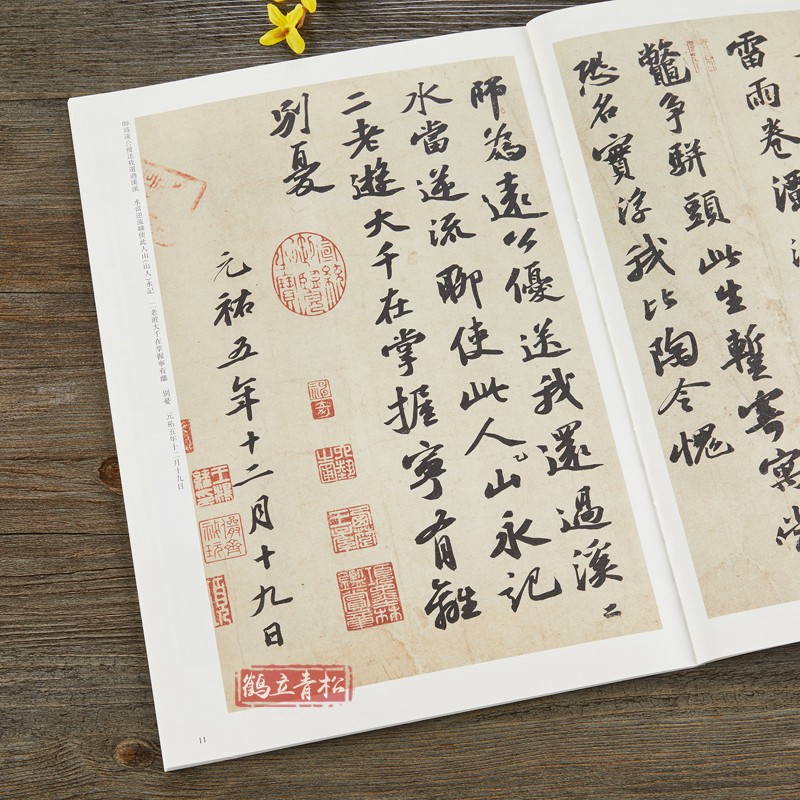 雷雨卷潭
鼈争駢頭此生暫寄寓常
恐名實浮我比陶令愧
師為遠公優送我還過溪二
水當逆流聊使此人山永記
二老遊大千在掌握寧有離
別憂
元祐五年十二月十九日
項墨林鑑賞章
師爲遠公優送我還過溪溪 水當逆流聊使此人山(山人)永記 二老遊大千在掌握寧有離 別憂 元祐五年十二月十九日
鹤立青松
11